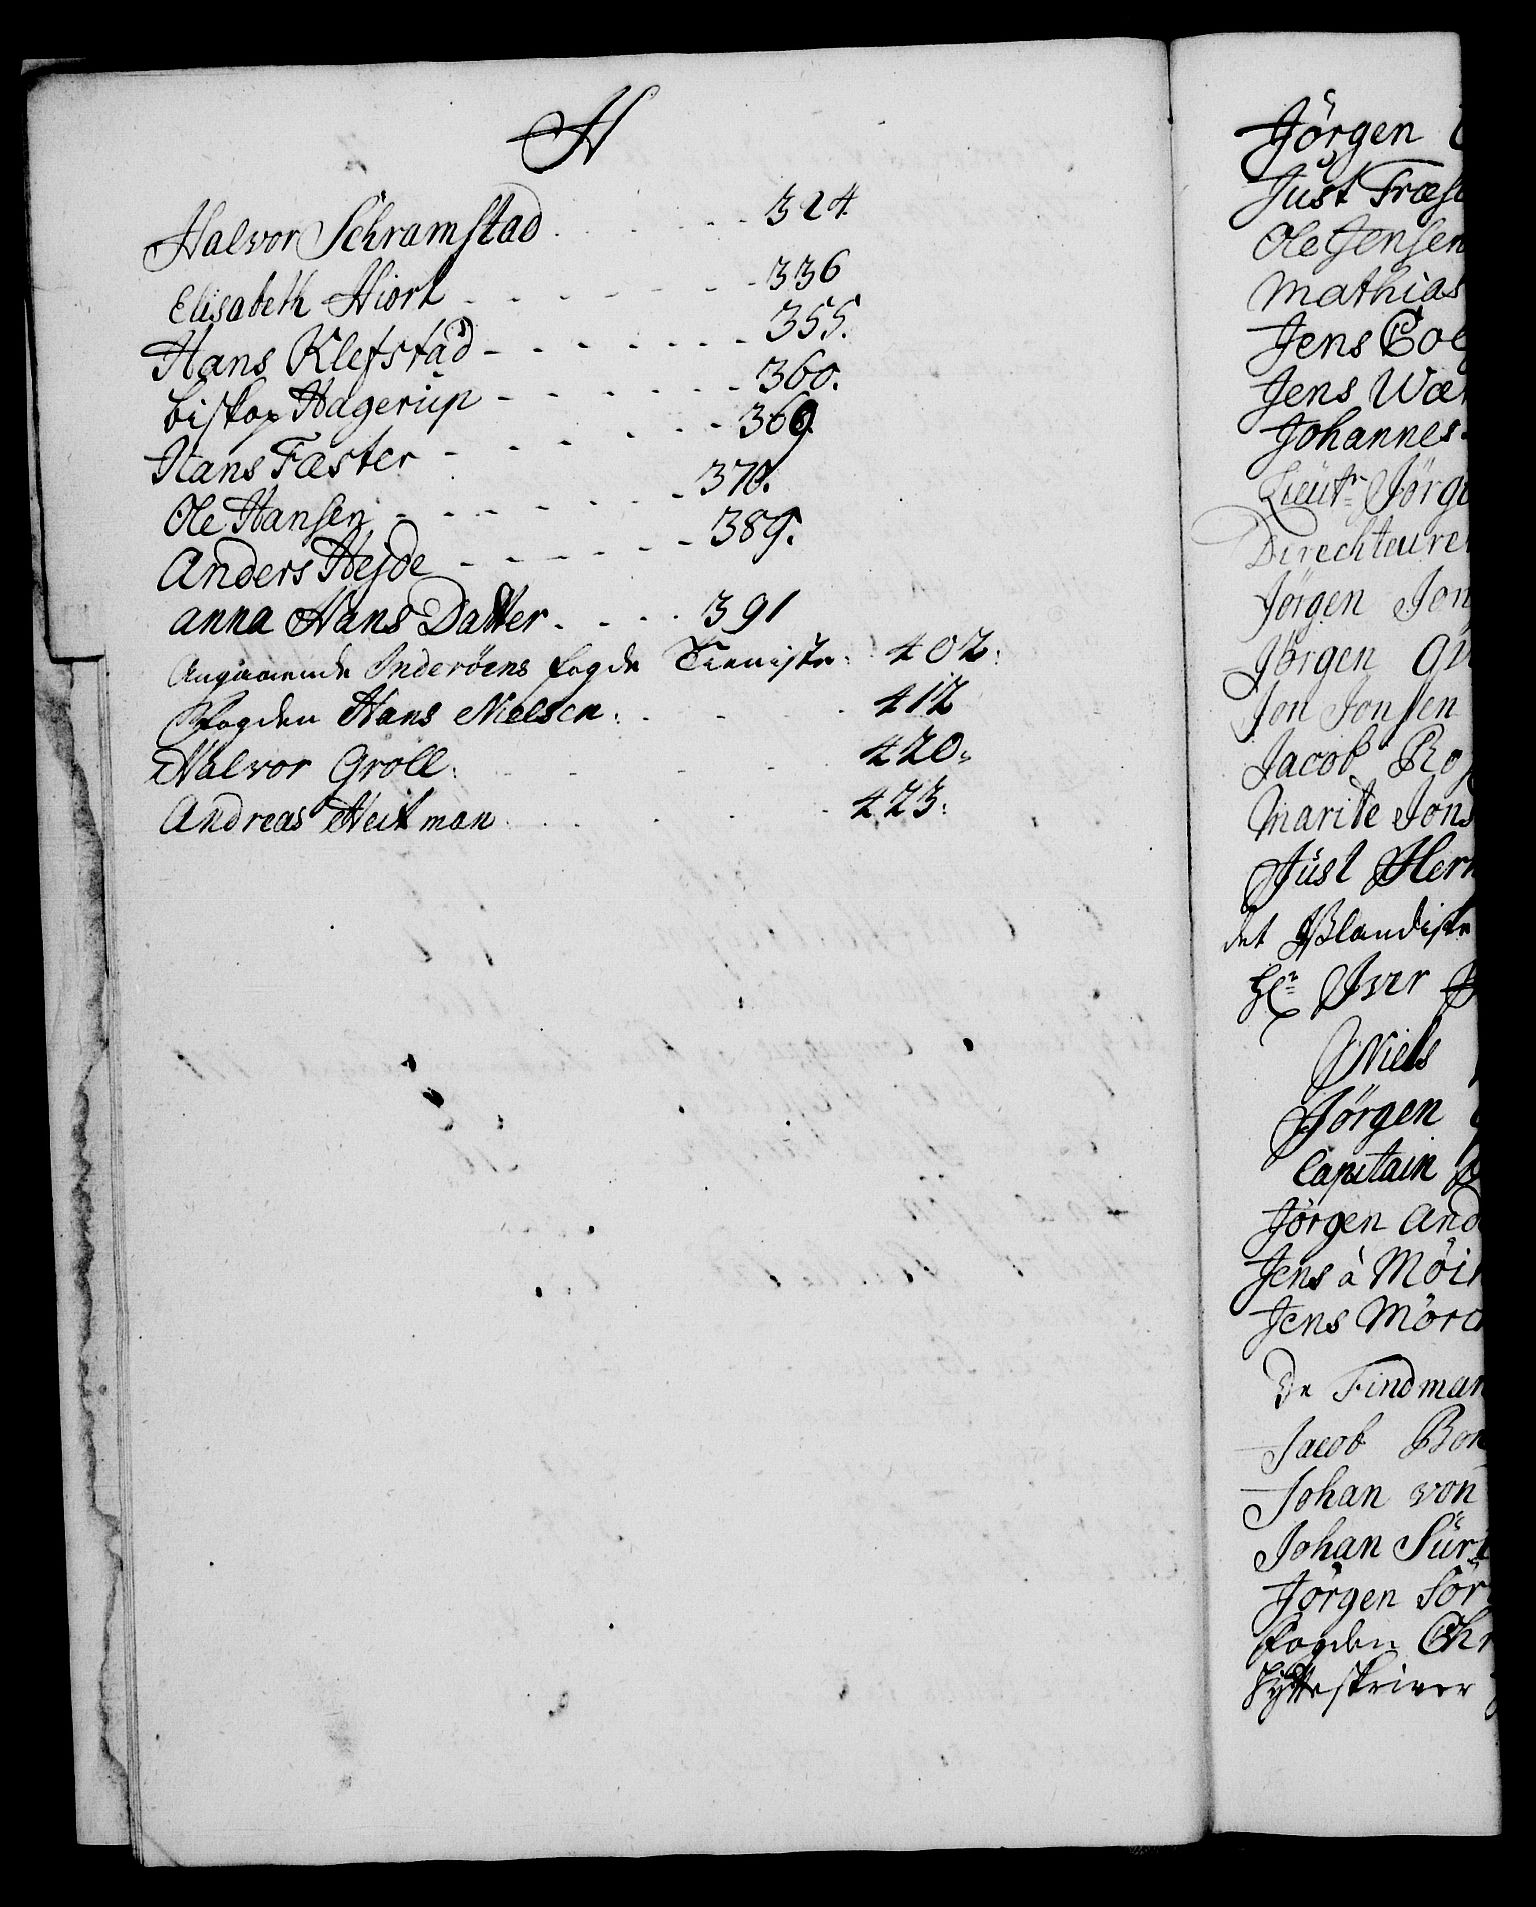 H
Halvor Schramstad . . . . . 324.
Elisabeth Hiort - - - - - - - 336
Hans Klefstad - - - - - - - - 355.
biskop Hagerup - - - - - - - 360.
Hans Fæster - - - - - - 369.
Ole Hansen - - - - - - 370.
Anders Hejde - - - - - - 389.
anna Hans Datter . . . . 391
Angaaende Inderöens fogde Tieniste: 402:
Fogden Hans Nielsen: . . . . 412
Halvor Groll: . . . . 420:
Andreas Heitman . . . . . 423:
Jörgen
Just Fræs
Ole Jensen
Mathias
Jens Coe
Jens Wær
Johannes
Lieutn: Jörge
Directeure
Jörgen Jon
Jörgen
Jon Jonsen
Jacob
Marite Jons
Just Herm
det Isslandiske
Hr: Iver
Niels
Jörgen
Capitain
Jörgen And
Jens à Möin
Jens Mörc
De Findman
Jacob Bon
Johan von
Johan Sür
Jörgen Sör
Fogden Chr
Hytteskriver